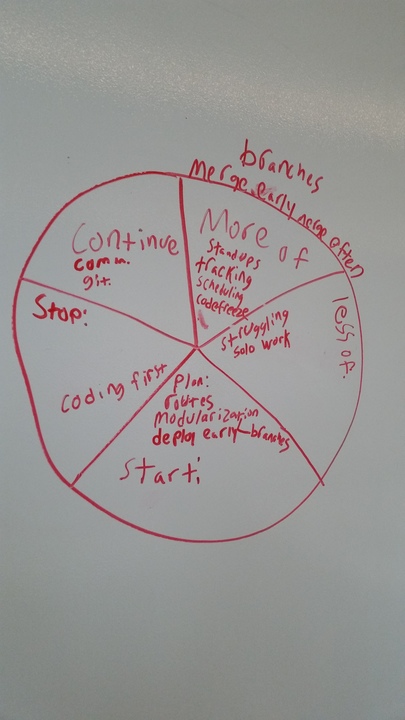 branches
Merge early merge often
Continue
comm.
git.
More of
Standups
tracking
scheduling
codefreeze
less of:
struggling
solo work
Stop:
coding first
Plan:
routes
modularization
deploy early-branches
Start: